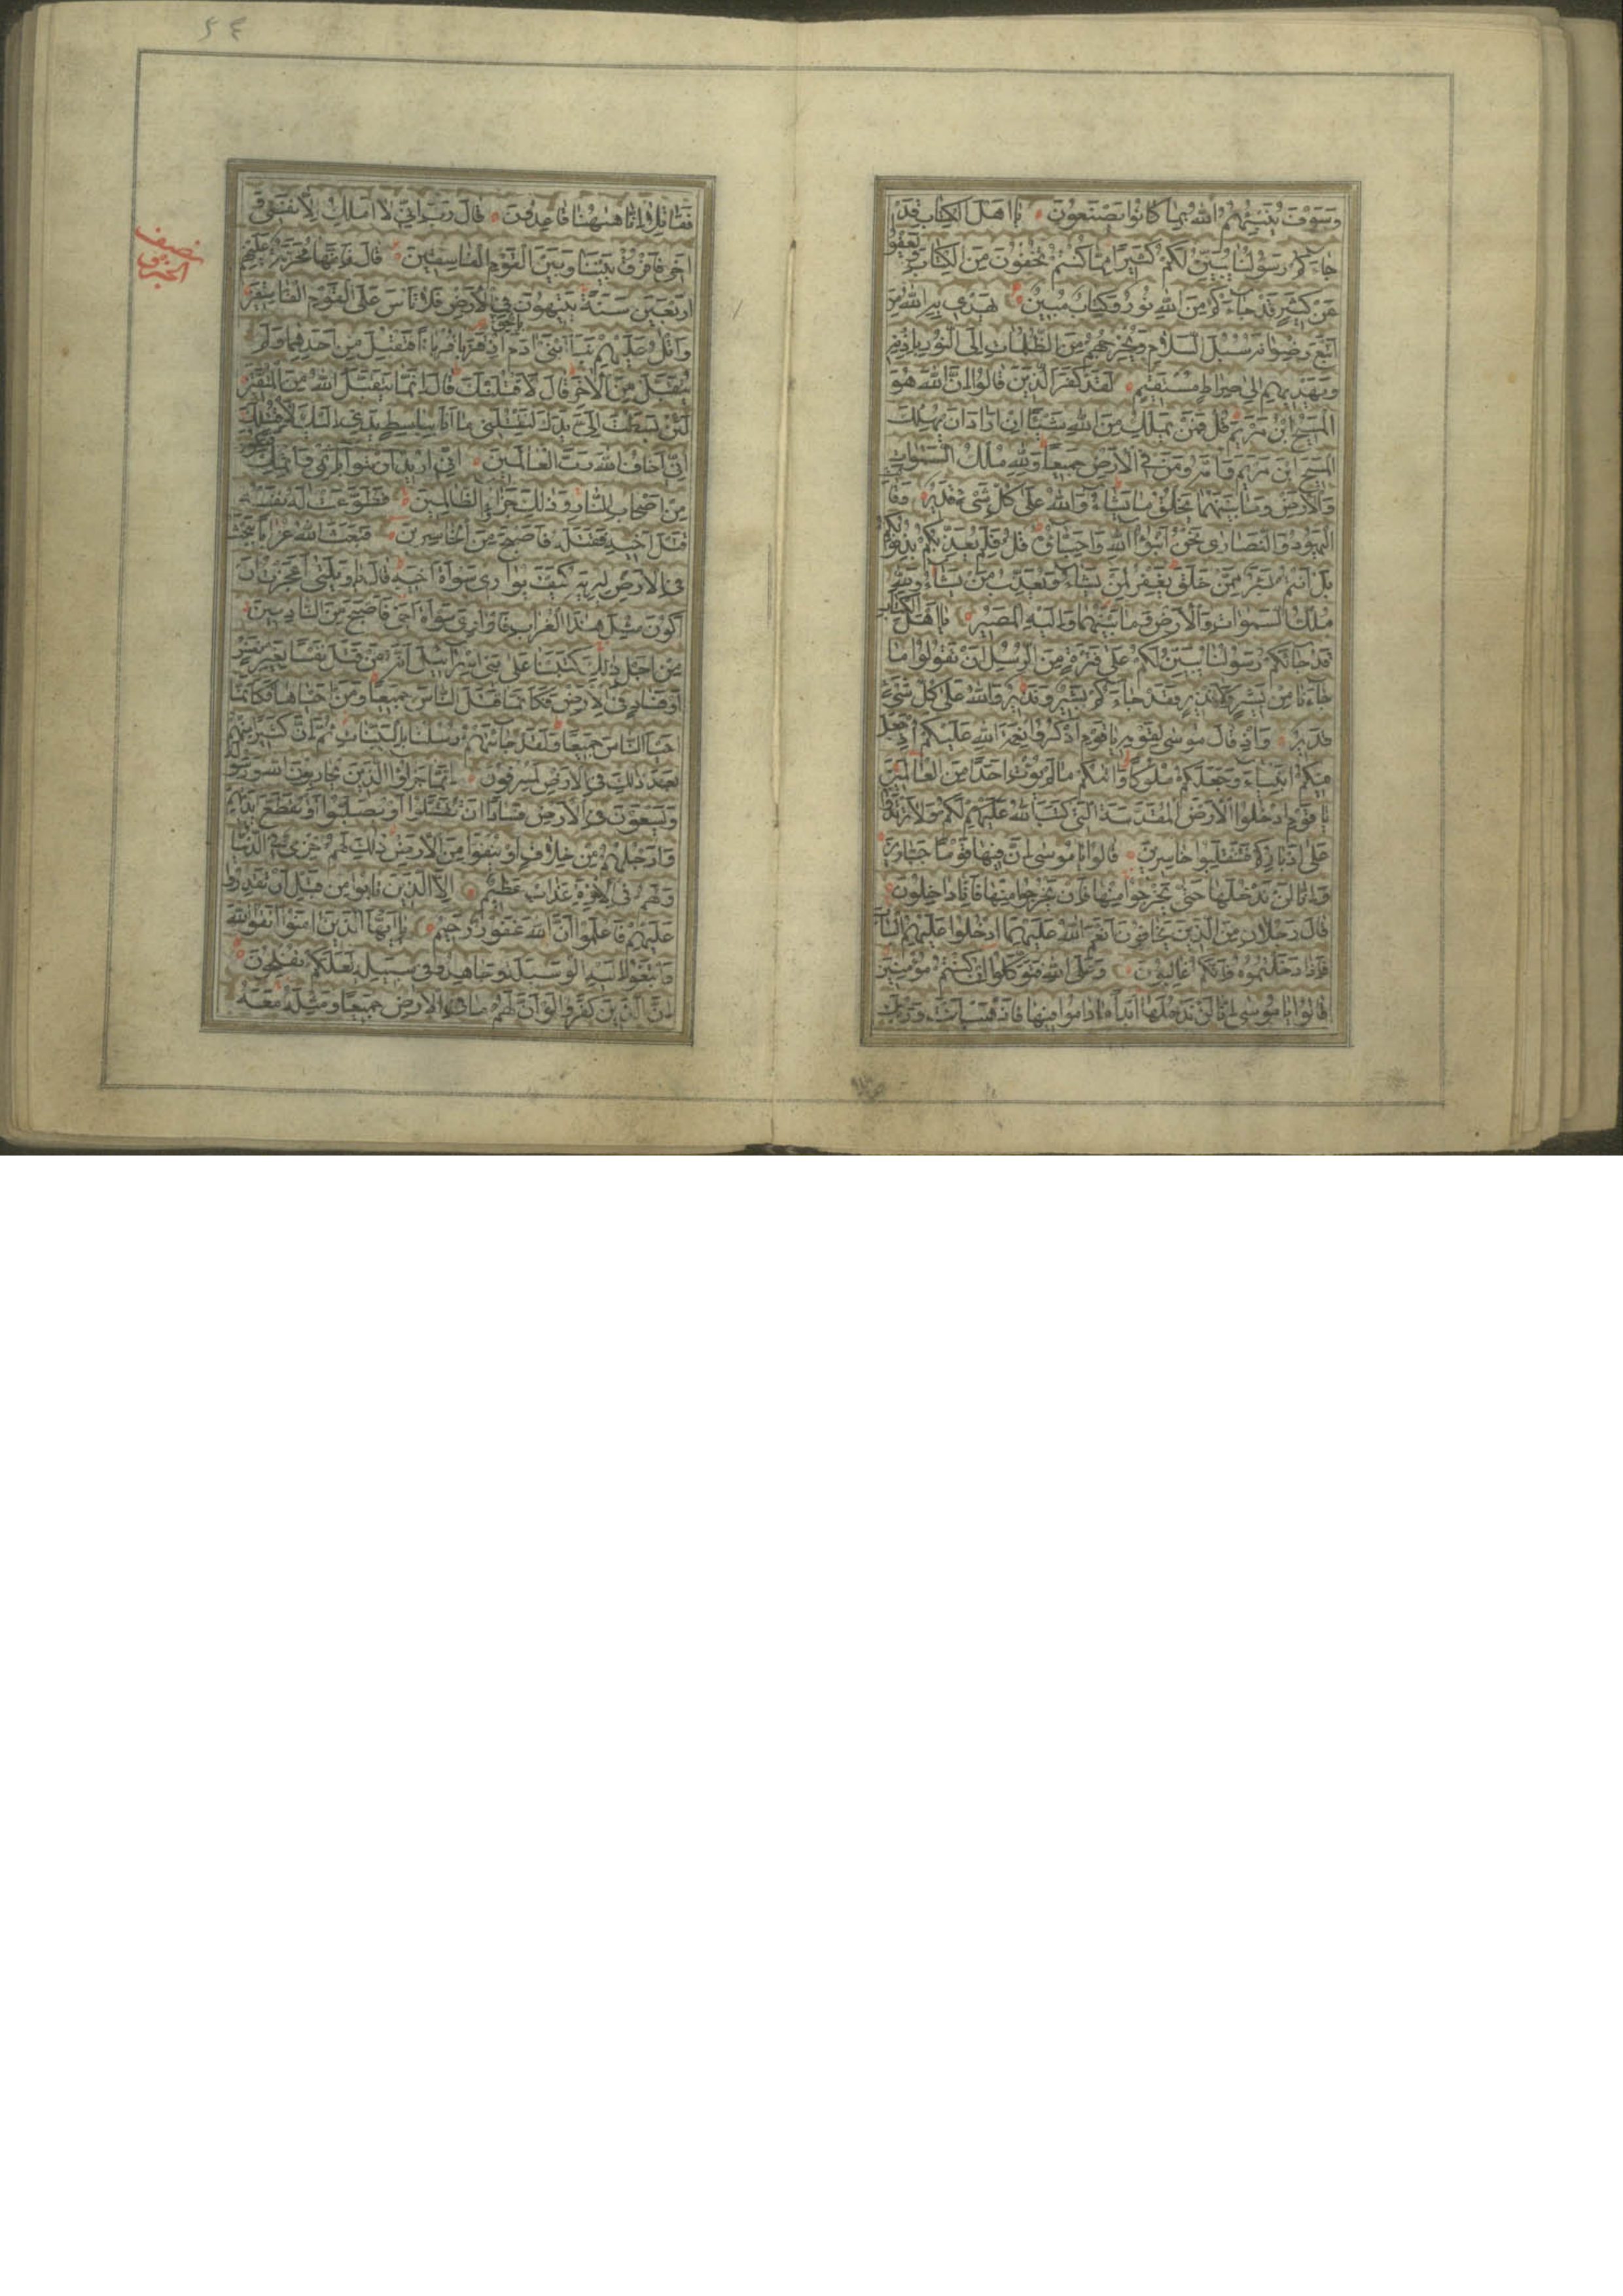 وَسَوْفَ يُنَبِّئُهُمُ اللّٰهُ بِمَا كَانُوا يَصْنَعُونَ يَا اَهْلَ الْكِتَابِ قَدْ
جَاءَكُمْ رَسُولُنَا يُبَيِّنُ لَكُمْ كَثِيرًا مِمَّا كُنْتُمْ تُخْفُونَ مِنَ الْكِتَابِ وَيَعْفُوا
عَنْ كَثِيرٍ قَدْ جَاءَكُمْ مِنَ اللّٰهِ نُورٌ وَكِتَابٌ مُبِينٌ يَهْدِي بِهِ اللّٰهُ مَنِ
اتَّبَعَ رِضْوَانَهُ سُبُلَ السَّلَامِ وَيُخْرِجُهُمْ مِنَ الظُّلُمَاتِ اِلَى النُّورِ بِاِذْنِهِ
وَيَهْدِيهِمْ اِلَى صِرَاطٍ مُسْتَقِيمٍ لَقَدْ كَفَرَ الَّذِينَ قَالُوا اِنَّ اللّٰهَ هُوَ
الْمَسِيحُ ابْنُ مَرْيَمَ قُلْ فَمَنْ يَمْلِكُ مِنَ اللّٰهِ شَيْئًا اِنْ اَرَادَ اَنْ يُهْلِكَ
الْمَسِيحَ ابْنَ مَرْيَمَ وَاُمَّهُ وَمَنْ فِي الْاَرْضِ جَمِيعًا وَلِلّٰهِ مُلْكُ السَّمٰوَاتِ
وَالْاَرْضِ وَمَا بَيْنَهُمَا يَخْلُقُ مَا يَشَاءُ وَاللّٰهُ عَلَى كُلِّ شَيْءٍ قَدِيرٌ وَقَالَتِ
الْيَهُودُ وَالنَّصَارَى نَحْنُ اَبْنٰؤُا اللّٰهِ وَاَحِبَّاؤُهُ قُلْ فَلِمَ يُعَذِّبُكُمْ بِذُنُوبِكُمْ
بَلْ اَنْتُمْ بَشَرٌ مِمَّنْ خَلَقَ يَغْفِرُ لِمَنْ يَشَاءُ وَيُعَذِّبُ مَنْ يَشَاءُ وَلِلّٰهِ
مُلْكُ السَّمٰوَاتِ وَالْاَرْضِ وَمَا بَيْنَهُمَا وَاِلَيْهِ الْمَصِيرُ يَا اَهْلَ الْكِتَابِ
قَدْ جَاءَكُمْ رَسُولُنَا يُبَيِّنُ لَكُمْ عَلَى فَتْرَةٍ مِنَ الرُّسُلِ اَنْ تَقُولُوا مَا
جَاءَنَا مِنْ بَشِيرٍ وَلَا نَذِيرٍ فَقَدْ جَاءَكُمْ بَشِيرٌ وَنَذِيرٌ وَاللّٰهُ عَلَى كُلِّ شَيْءٍ
قَدِيرٌ وَاِذْ قَالَ مُوسَى لِقَوْمِهِ يَا قَوْمِ اذْكُرُوا نِعْمَةَ اللّٰهِ عَلَيْكُمْ اِذْ جَعَلَ
فِيكُمْ اَنْبِيَاءَ وَجَعَلَكُمْ مُلُوكًا وَاٰتٰىكُمْ مَا لَمْ يُؤْتِ اَحَدًا مِنَ الْعَالَمِينَ
يَا قَوْمِ ادْخُلُوا الْاَرْضَ الْمُقَدَّسَةَ الَّتِي كَتَبَ اللّٰهُ لَكُمْ وَلَا تَرْتَدُّوا
عَلَى اَدْبَارِكُمْ فَتَنْقَلِبُوا خَاسِرِينَ قَالُوا يَا مُوسَى اِنَّ فِيهَا قَوْمًا جَبَّارِينَ
وَاِنَّا لَنْ نَدْخُلَهَا حَتَّى يَخْرُجُوا مِنْهَا فَاِنْ يَخْرُجُوا مِنْهَا فَاِنَّا دَاخِلُونَ
قَالَ رَجُلَانِ مِنَ الَّذِينَ يَخَافُونَ اَنْعَمَ اللّٰهُ عَلَيْهِمَا ادْخُلُوا عَلَيْهِمُ الْبَابَ
فَاِذَا دَخَلْتُمُوهُ فَاِنَّكُمْ غَالِبُونَ وَعَلَى اللّٰهِ فَتَوَكَّلُوا اِنْ كُنْتُمْ مُؤْمِنِينَ
قَالُوا يَا مُوسَى اِنَّا لَنْ نَدْخُلَهَا اَبَدًا مَا دَامُوا فِيهَا فَاذْهَبْ اَنْتَ وَرَبُّكَ
٥٤
فَقَاتِلَا اِنَّا هٰهُنَا قَاعِدُونَ قَالَ رَبِّ اِنِّي لَا اَمْلِكُ اِلَّا نَفْسِي وَ
اَخِي فَافْرُقْ بَيْنَنَا وَبَيْنَ الْقَوْمِ الْفَاسِقِينَ قَالَ فَاِنَّهَا مُحَرَّمَةٌ عَلَيْهِمْ
نصف الحزب
اَرْبَعِينَ سَنَةً يَتِيهُونَ فِي الْاَرْضِ فَلَا تَاْسَ عَلَى الْقَوْمِ الْفَاسِقِينَ
وَاتْلُ عَلَيْهِمْ نَبَاَ ابْنَيْ اٰدَمَ بِالْحَقِّ اِذْ قَرَّبَا قُرْبَانًا فَتُقُبِّلَ مِنْ اَحَدِهِمَا وَلَمْ
يُتَقَبَّلْ مِنَ الْاٰخَرِ قَالَ لَاَقْتُلَنَّكَ قَالَ اِنَّمَا يَتَقَبَّلُ اللّٰهُ مِنَ الْمُتَّقِينَ
لَئِنْ بَسَطْتَ اِلَيَّ يَدَكَ لِتَقْتُلَنِي مَا اَنَا بِبَاسِطٍ يَدِيَ اِلَيْكَ لِاَقْتُلَكَ
اِنِّي اَخَافُ اللّٰهَ رَبَّ الْعَالَمِينَ اِنِّي اُرِيدُ اَنْ تَبُوأَ بِاِثْمِي وَاِثْمِكَ فَتَكُونَ
مِنْ اَصْحَابِ النَّارِ وَذٰلِكَ جَزَاءُ الظَّالِمِينَ فَطَوَّعَتْ لَهُ نَفْسُهُ
قَتْلَ اَخِيهِ فَقَتَلَهُ فَاَصْبَحَ مِنَ الْخَاسِرِينَ فَبَعَثَ اللّٰهُ غُرَابًا يَبْحَثُ
فِي الْاَرْضِ لِيُرِيَهُ كَيْفَ يُوَارِي سَوْاَةَ اَخِيهِ قَالَ يَا وَيْلَتٰى اَعَجَزْتُ اَنْ
اَكُونَ مِثْلَ هٰذَا الْغُرَابِ فَاُوَارِيَ سَوْاَةَ اَخِي فَاَصْبَحَ مِنَ النَّادِمِينَ
مِنْ اَجْلِ ذٰلِكَ كَتَبْنَا عَلَى بَنِي اِسْرَائِيلَ اَنَّهُ مَنْ قَتَلَ نَفْسًا بِغَيْرِ نَفْسٍ
اَوْ فَسَادٍ فِي الْاَرْضِ فَكَاَنَّمَا قَتَلَ النَّاسَ جَمِيعًا وَمَنْ اَحْيَاهَا فَكَاَنَّمَا
اَحْيَا النَّاسَ جَمِيعًا وَلَقَدْ جَاءَتْهُمْ رُسُلُنَا بِالْبَيِّنَاتِ ثُمَّ اِنَّ كَثِيرًا مِنْهُمْ
بَعْدَ ذٰلِكَ فِي الْاَرْضِ لَمُسْرِفُونَ اِنَّمَا جَزَاؤُا الَّذِينَ يُحَارِبُونَ اللّٰهَ وَرَسُولَهُ
وَيَسْعَوْنَ فِي الْاَرْضِ فَسَادًا اَنْ يُقَتَّلُوا اَوْ يُصَلَّبُوا اَوْ تُقَطَّعَ اَيْدِيهِمْ
وَاَرْجُلُهُمْ مِنْ خِلَافٍ اَوْ يُنْفَوْا مِنَ الْاَرْضِ ذٰلِكَ لَهُمْ خِزْيٌ فِي الدُّنْيَا
وَلَهُمْ فِي الْاٰخِرَةِ عَذَابٌ عَظِيمٌ اِلَّا الَّذِينَ تَابُوا مِنْ قَبْلِ اَنْ تَقْدِرُوا
عَلَيْهِمْ فَاعْلَمُوا اَنَّ اللّٰهَ غَفُورٌ رَحِيمٌ يَا اَيُّهَا الَّذِينَ اٰمَنُوا اتَّقُوا اللّٰهَ
وَابْتَغُوا اِلَيْهِ الْوَسِيلَةَ وَجَاهِدُوا فِي سَبِيلِهِ لَعَلَّكُمْ تُفْلِحُونَ
اِنَّ الَّذِينَ كَفَرُوا لَوْ اَنَّ لَهُمْ مَا فِي الْاَرْضِ جَمِيعًا وَمِثْلَهُ مَعَهُ